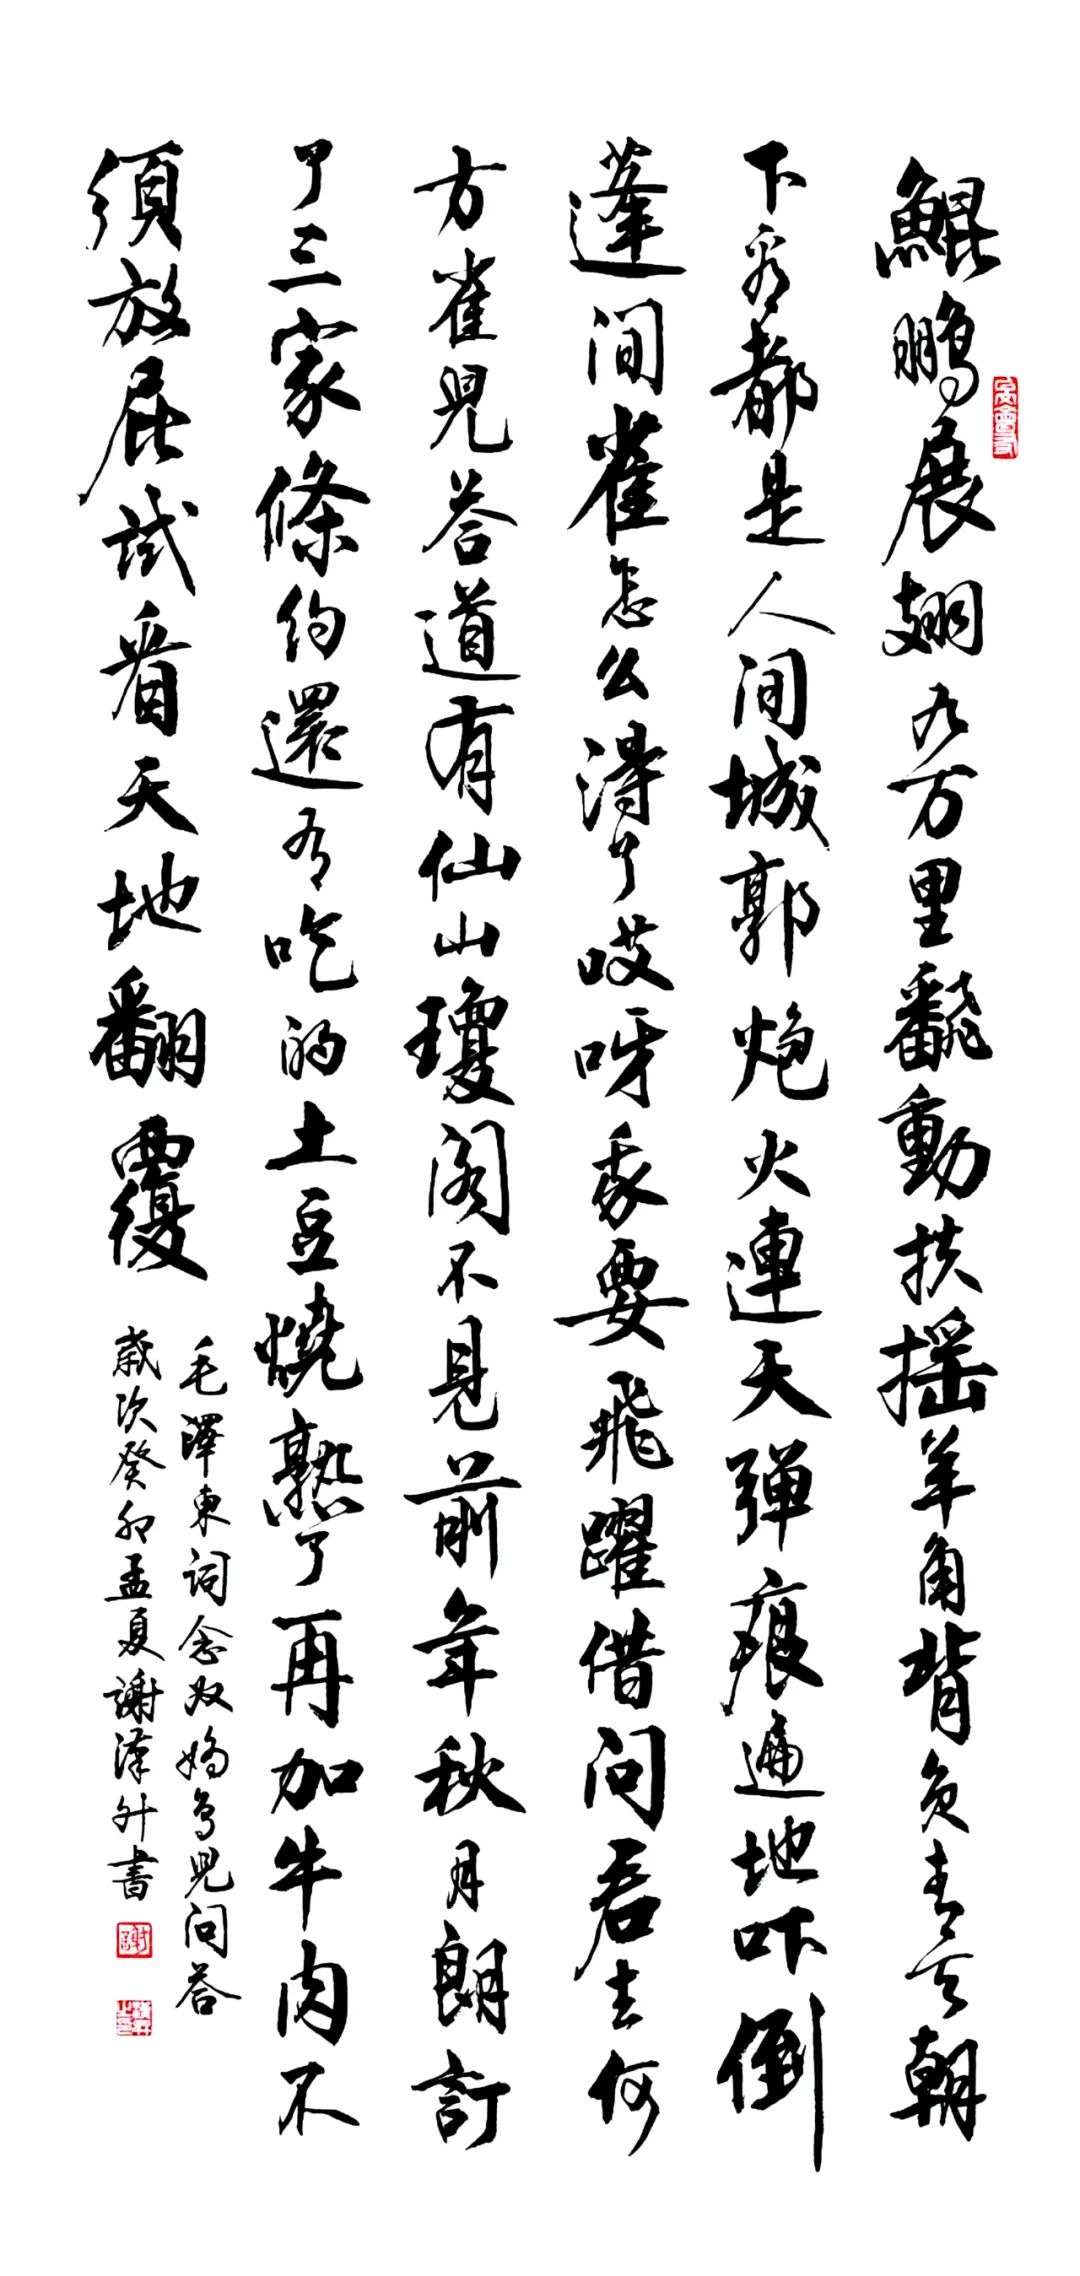 鯤鵬展翅九万里飜動扶摇羊角背负青天朝
下看都是人间城郭炮火連天弹痕遍地吓倒
蓬间雀怎么得了哎呀我要飛躍借问君去何
方雀兒答道有仙山瓊阁不見前年秋月朗訂
了三家條约還有吃的土豆燒熟了再加牛肉不
須放屁試看天地翻覆
毛澤東词念奴嬌鸟兒问答
歲次癸卯孟夏謝漢升書